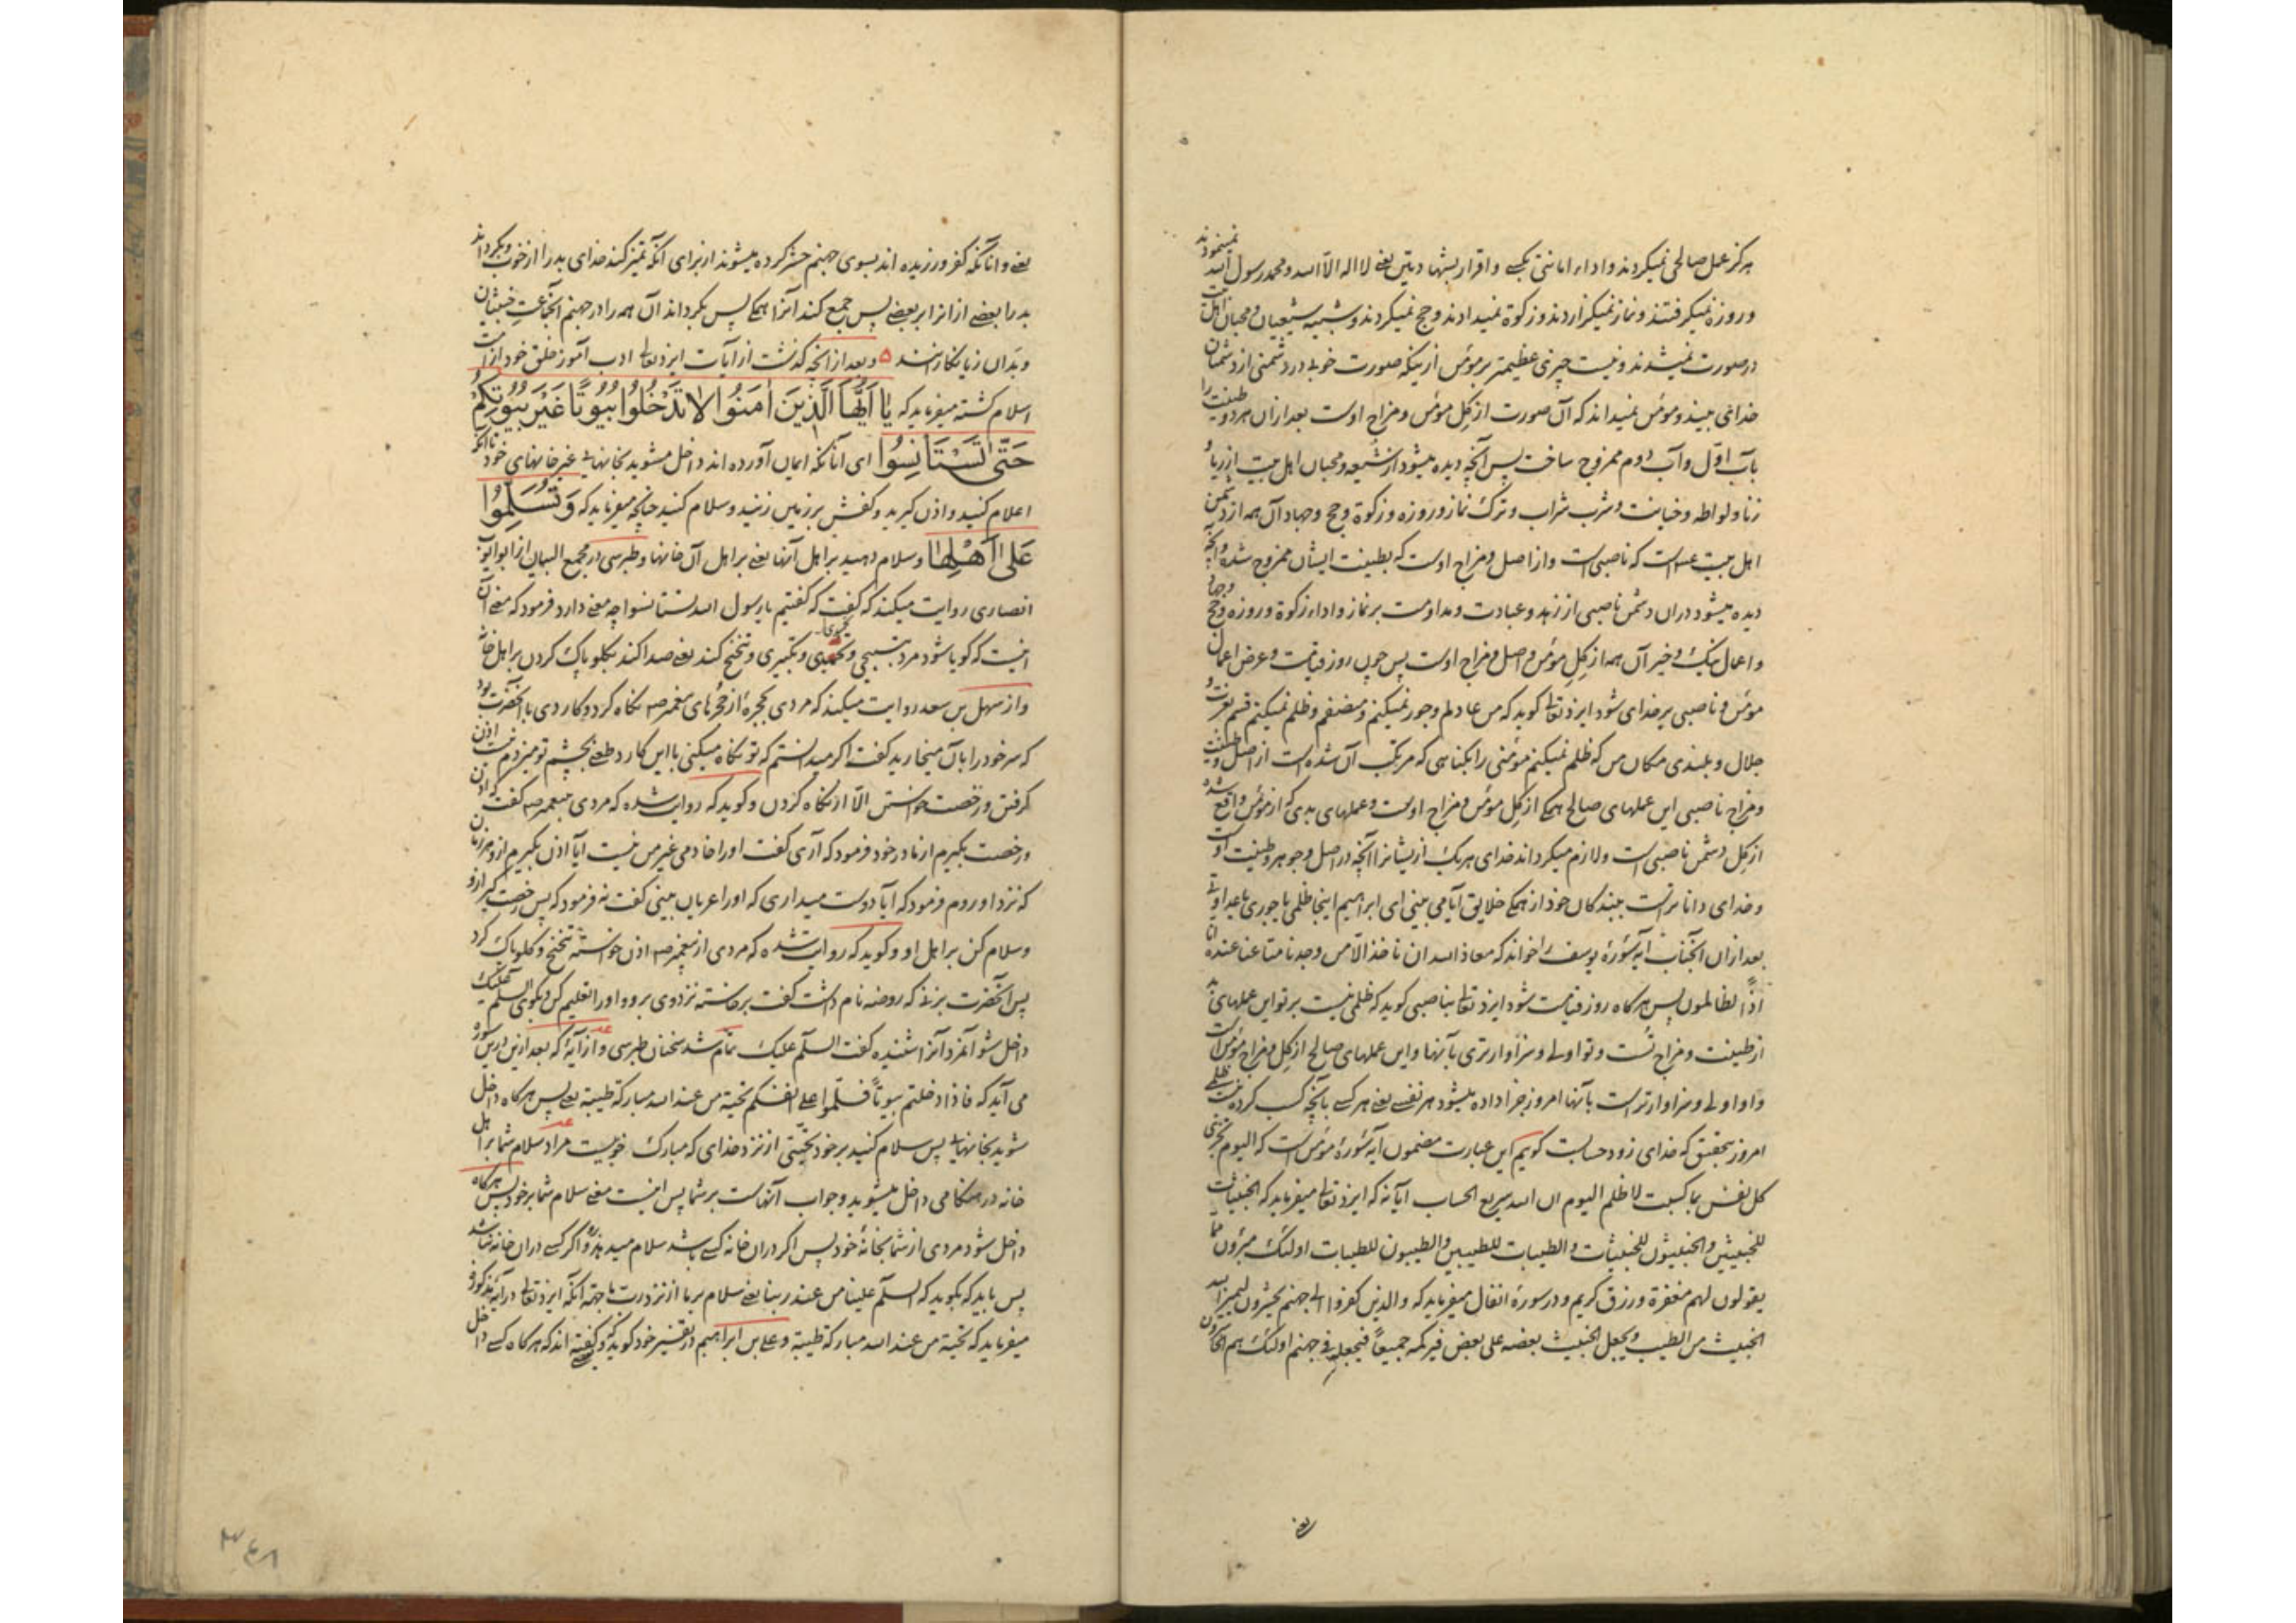 هرگز عمل صالحی نمیکردند و اداء امانتی بکسی و اقرار بشهادتین یعنی لا اله الا الله و محمد رسول الله نمینمودند
و روزه نمیکرفتند و نماز نمیکزاردند و زکوة نمیدادند و حج نمیکردند و شبیه شیعیان و محبان اهل بیت
در صورت نمیشدند و نیست چیزی عظیمتر بر مؤمن از اینکه صورت خوبی در دشمنی از دشمنان
خدا می بیند و مؤمن نمیداند که آن صورت از گل مؤمن و مزاج اوست بعد از ان هر دو طینت را
بآب اول و آب دوم ممزوج ساخت پس آنچه دیده میشود از شیعه و محبان اهل بیت از ربا و
زنا و لواطه و خیانت و شرب شراب و ترک نماز و روزه و زکوة و حج و جهاد آن همه از دشمن
اهل بیت است که ناصبی است و از اصل و مزاج اوست که بطینت ایشان ممزوج شده و آنچه
دیده میشود دران دشمن ناصبی از زهد و عبادت و مداومت بر نماز و اداء زکوة و روزه و حج و جهاد
و اعمال نیک و خیر آن همه از گل مؤمن و اصل و مزاج اوست پس چون روز قیامت و عرض اعمال
مؤمن و ناصبی بر خدای شود ایزد تعالی کوید که من عادلم و جور نمیکنم و منصفم و ظلم نمیکنم قسم بعزت و
جلال و بلندی مکان من که ظلم نمیکنم مؤمنی را بکناهی که مرتکب آن شده است از اصل و طینت
و مزاج ناصبی این عملهای صالح همکی از گل مؤمن و مزاج اوست و عملهای بدی که از مؤمن واقع شده
از گل دشمن ناصبی است و لازم میکرداند خدای هر یک از ایشانرا آنچه در اصل و جوهر و طینت اوست
و خدای داناتر است ببندکان خود از همکی خلایق آیا می بینی ای ابراهیم اینجا ظلمی یا جوری یا عدوانی
بعد از ان آنجناب آیه سورۀ یوسف را خواند که معاذ الله ان ناخذ الا من وجدنا متاعنا عنده انا
اذا لظالمون پس هرکاه روز قیامت شود ایزد تعالی بناصبی کوید که ظلمی نیست بر تو این عملهای بد
از طینت و مزاج تست و تو اولی و سزاوارتری بآنها و این عملهای صالح از گل و مزاج مؤمن است
و او اولی و سزاوارتر است بآنها امروز جزا داده میشود هر نفسی یعنی هر کسی بآنچه کسب کرده نیست ظلمی
امروز بتحقیق که خدای زود حسابست کویم این عبارت مضمون آیه سورۀ مؤمن است که الیوم تجزی
کل نفس بما کسبت لا ظلم الیوم ان الله سریع الحساب ایا نه که ایزد تعالی میفرماید که الخبیثات
للخبیثین والخبیثون للخبیثات والطیبات للطیبین والطیبون للطیبات اولئک مبرؤن مما
یقولون لهم مغفرة ورزق کریم و در سورۀ انفال میفرماید که والذین کفروا الی جهنم یحشرون لیمیز الله
الخبیث من الطیب ویجعل الخبیث بعضه علی بعض فیرکمه جمیعاً فیجعله فی جهنم اولئک هم الخاسرون
یعنی
یعنی و آنانکه کفر ورزیده اند بسوی جهنم حشر کرده میشوند از برای آنکه تمیز کند خدای بد را از خوب و بکرداند
بد را بعضی از انرا بر بعضی پس جمع کند آنرا همکی پس بکرداند آن همه را در جهنم آنجماعت خبیثان
و بدان زیانکارانند ۵ و بعد از آنچه کذشت از آیات ایزد تعالی ادب آموز خلق خود از امت
اسلام کشته میفرماید که یَا اَیُّهَا الَّذِینَ اٰمَنُوا لَا تَدْخُلُوا بُیُوتًا غَیْرَ بُیُوتِکُمْ
حَتّٰی تَسْتَأْنِسُوا ای آنانکه ایمان آورده اند داخل مشوید بخانهای غیر خانهای خود تا آنکه
اعلام کنید و اذن کیرید و کفش بر زمین زنید و سلام کنید چنانچه میفرماید که وَتُسَلِّمُوا
عَلٰی اَهْلِهَا و سلام دهید بر اهل آنها یعنی بر اهل آن خانها و طبرسی در مجمع البیان از ابو ایوب
انصاری روایت میکند که کفت که کفتیم یا رسول الله تستانسوا چه معنی دارد فرمود که معنی آن
اینست که کویا شود مرد بتسبیحی و تحمیدی و تکبیری و تنحنح کند یعنی صدا کند بکلو پاک کردن بر اهل خانه
و از سهل بن سعد روایت میکند که مردی بحجرۀ از حجرهای پیغمبر ص نکاه کرد و کاردی با آنحضرت بود
که سر خود را بآن میخارید کفت اکر میدانستم که تو نکاه میکنی با این کارد طعنی بچشم تو میزدم نیست اذن
کرفتن و رخصت خواستن الا از نکاه کردن و کوید که روایت شده که مردی به پیغمبر ص کفت که اذن
و رخصت بکیرم از مادر خود فرمود که آری کفت او را خادمی غیر من نیست آیا اذن بکیرم ازو هر زمان
که نزد او روم فرمود که آیا دوست میداری که او را عریان بینی کفت نه فرمود که پس رخصت کیر ازو
و سلام کن بر اهل او و کوید که روایت شده که مردی از پیغمبر ص اذن خواسته تنحنح و کلو پاک کرد
پس آنحضرت بزنی که روضه نام داشت کفت برخاسته نزد وی برو و او را تعلیم کن و بکوی السلام علیک
داخل شو آنمرد آنرا شنیده کفت السلام علیک تمام شد سخنان طبرسی و از آیۀ که بعد ازین درین سوره
می آید که فاذا دخلتم بیوتاً فسلموا علی انفسکم تحیة من عند الله مبارکة طیبة یعنی پس هرکاه داخل
شوید بخانهای پس سلام کنید بر خود تحیتی از نزد خدای که مبارک خوبست مراد سلام شما بر اهل
خانه در هنکامی داخل میشوید و جواب آنهاست بر شما پس اینست معنی سلام شما بر خود پس هرکاه
داخل شود مردی از شما بخانۀ خود پس اکر دران خانه کسی باشد سلام میدهد برو و اکر کسی دران خانه نباشد
پس باید که بکوید که السلام علینا من عند ربنا یعنی سلام بر ما از نزد رب ما جهة آنکه ایزد تعالی در آیه مذکوره
میفرماید که تحیة من عند الله مبارکة طیبة و علی بن ابراهیم در تفسیر خود کوید که و کفته اند که هرکاه کسی داخل
۳۶۸